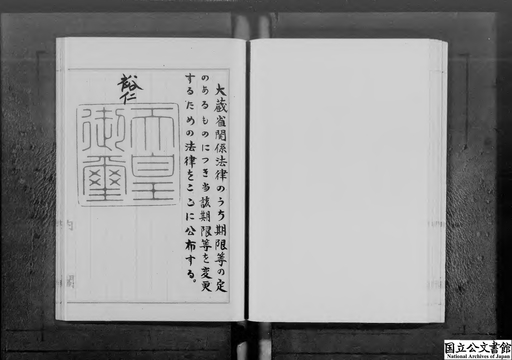 大蔵省関係法律のうち期限等の定
のあるものにつき当該期限等を変更
するための法律をここに公布する。
裕仁
天皇
御璽
内閣
国立公文書館
National Archives of Japan